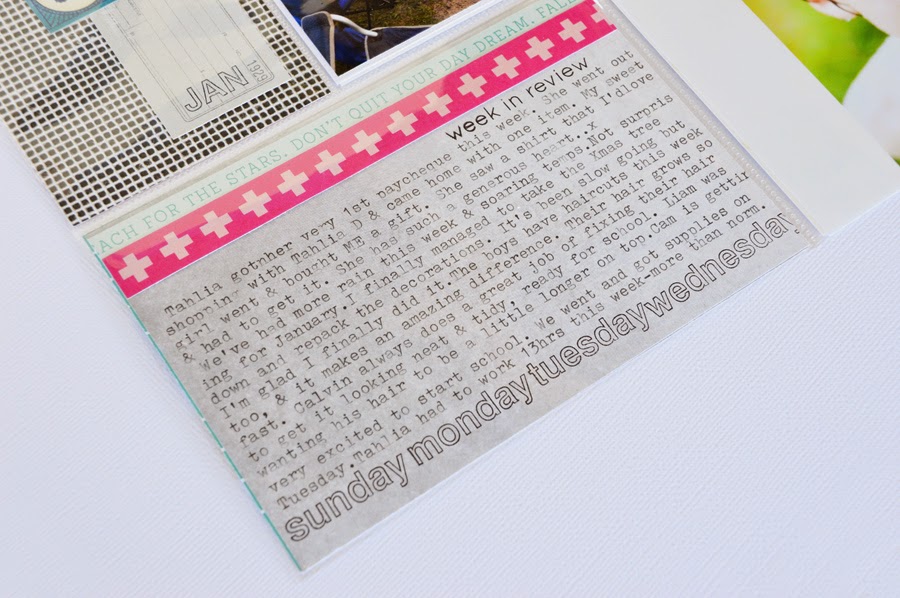 JAN
1929
EACH FOR THE STARS. DON'T QUIT YOUR DAY DREAM. FALL
week in review
Tahlia gotnher very 1st paycheque this week. She went out
shopping with Tahlia D & came home with one item. My sweet
girl went & bought ME a gift. She saw a shirt that I'dlove
& had to get it. She has such a generous heart..x
We've had more rain this week & soaring temps.Not surpris
ing for January.I finally managed to take the Xmas tree
down and repack the decorations. It's been slow going but
I'm glad I finally did it.The boys have haircuts this week
too, & it makes an amazing difference. Their hair grows so
fast. Calvin always does a great job of fixing their hair
to get it looking neat & tidy, ready for school. Liam was
wanting his hair to be a little longer on top.Cam is gettin
very excited to start school. We went and got supplies on
Tuesday.Tahlia had to work 13hrs this week-more than norm.
sunday monday tuesday wednesday